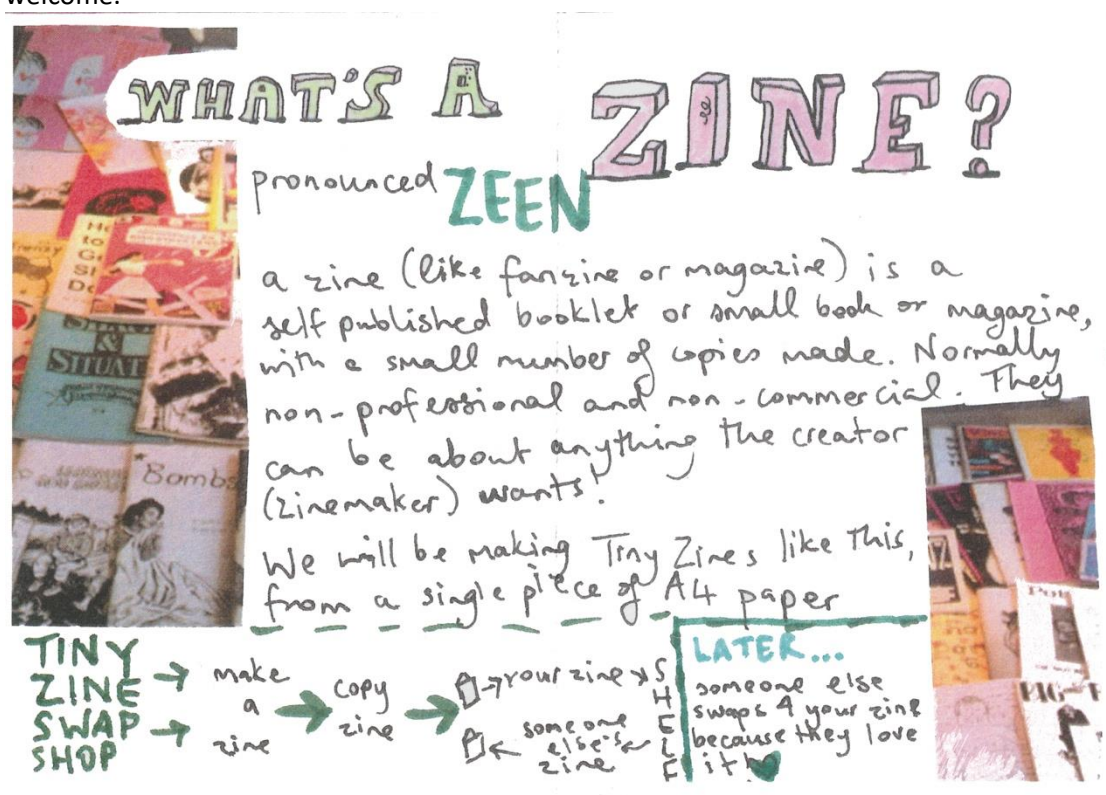 welcome!
WHAT'S A ZINE?
pronounced ZEEN
a zine (like fanzine or magazine) is a
self published booklet or small book or magazine,
with a small number of copies made. Normally
non-professional and non-commercial. They
can be about anything the creator
(zinemaker) wants!
We will be making Tiny Zines like this,
from a single piece of A4 paper
TINY
ZINE
SWAP
SHOP
make
a
zine
copy
zine
your zine
someone
else's
zine
SHELF
LATER...
someone else
swaps 4 your zine
because they love
it!
SITUAT
Bombs